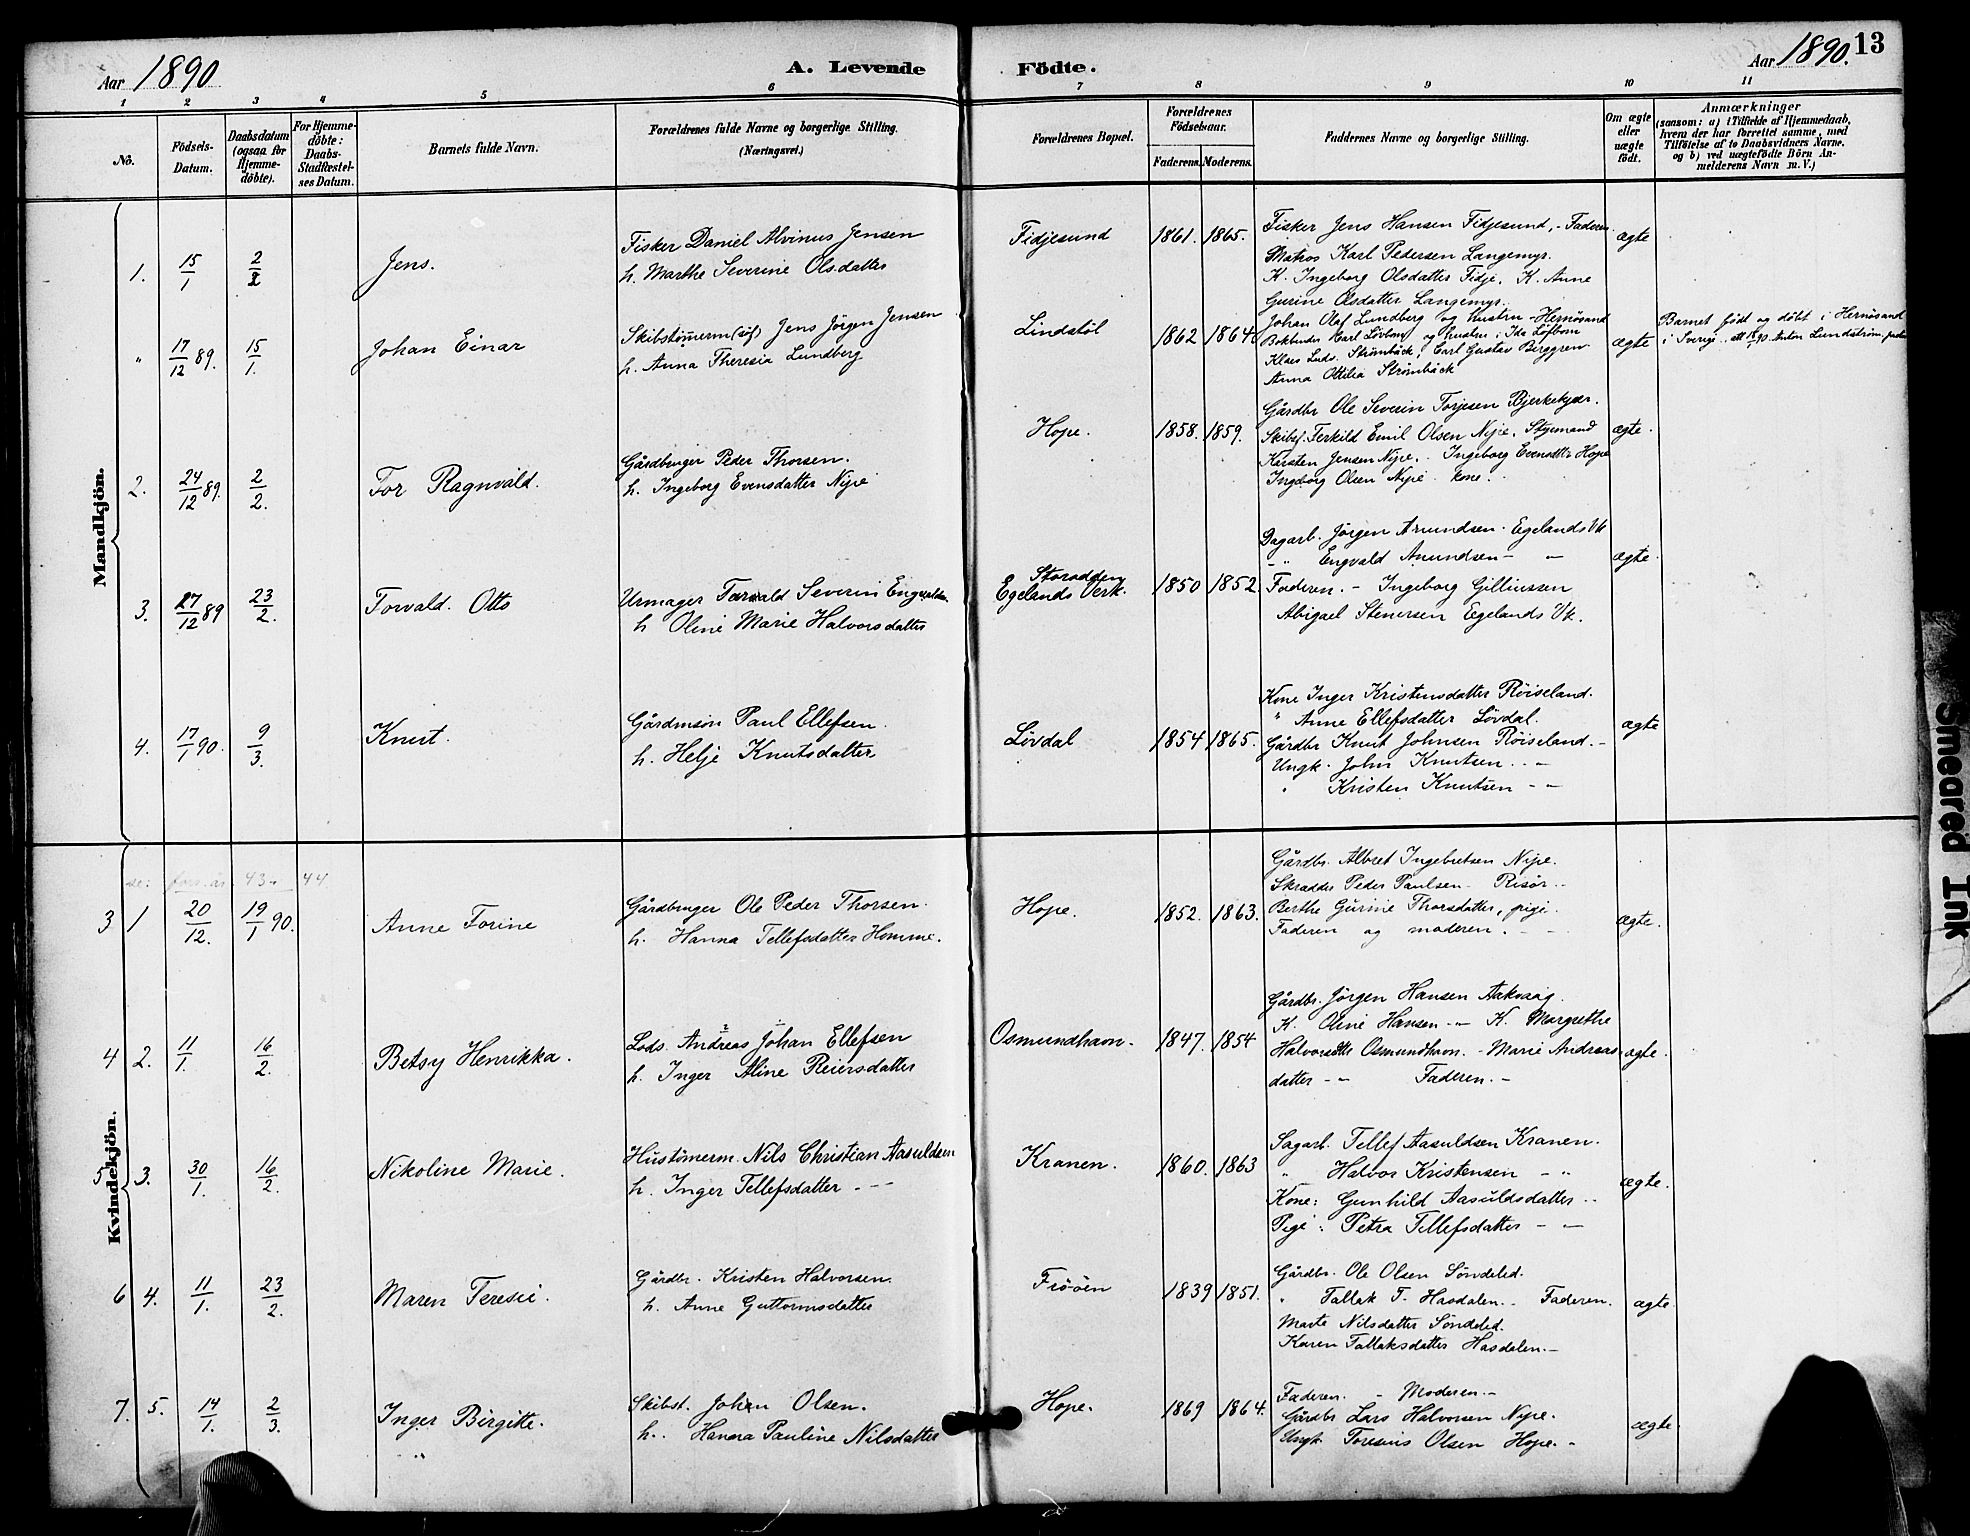 Aar 1890 A. Levende Födte. Aar 1890. 13
1 2 3 4 5 6 7 8 9 10 11
No.
Födsels-Datum.
Daabsdatum (ogsaa for Hjemme-döbte).
For Hjemme-döbte: Daabs-Stadfæstel-ses Datum.
Barnets fulde Navn.
Forældrenes fulde Navne og borgerlige Stilling. (Næringsvei.)
Forældrenes Bopæl.
Forældrenes Födselsaar.
Faderens. Moderens.
Faddernes Navne og borgerlige Stilling.
Om ægte eller uægte födt.
Anmærkninger
(saasom: a) i Tilfælde af Hjemmedaab,
hvem der har forrettet samme, med
Tilföielse af to Daabsvidners Navne.
og b) ved uægtefödte Börn An-
melderens Navn m. V.)
Mandkjön.
1. 15/1 2/2 Jens.
Fisker Daniel Alvinus Jensen
h. Marthe Severine Olsdatter
Fidjesund 1861. 1865.
Fisker Jens Hansen Fidjesund, - Faderen.
Matros Karl Pedersen Langemyr.
K. Ingeborg Olsdatter Fidje, K. Anne
Gurine Olsdatter Langemyr.
ægte
" 17/12 89. 15/1. Johan Einar
Skibstömerm Jens Jörgen Jensen
h. Anna Theresia Lundberg
Lindstöl 1862 1864
Johan Olaf Lundberg og hustru - Hernösand
Bokbinder Karl Lövbom og hustru, Ida Löfbom
Klaes Ludv. Strömbäck, Carl Gustav Berggren
Anna Ottilia Strömbäck
ægte
Barnet født og döbt i Hernösand
i Sverige. att 90. Anton Lundström,
2. 24/12 89. 2/2. Tor Ragnvald.
Gårdbruger Peder Thorsen.
h. Ingeborg Evensdatter Nipe
Hope. 1858. 1859.
Gårdbr Ole Severin Torjesen Bjerkekjær.
Skibsf. Terkild Emil Olsen Nipe, Styrmand
Karsten Jensen Nipe. Ingeborg Evensdttr Hope
Ingeborg Olsen Nipe kone.
ægte.
3. 27/12 89 23/2. Torvald. Otto
Urmager Torvald Severin
h Oline Marie Halvorsdatter
Storodden
Egelands Verk. 1850 1852.
Dagarb. Jörgen Amundsen. Egelands Vk
- " Engvald Amundsen - "
Faderen. - Ingeborg Gilliussen
Abigael Stenersen Egelands Vk.
ægte.
4. 17/1 90. 9/3. Knut.
Gårdmson Paul Ellefsen.
h. Helje Knutsdatter
Lövdal 1854 1865.
Kone Inger Kristensdatter Röiseland.
" Anne Ellefsdatter Lövdal.
Gårdbr Knut Johnsen Röiseland. -
Ungk. John Knutsen. . -
" Kristen Knutsen - -
ægte
Kvindekjön.
43 44
3 1 20/12. 19/1 90. Anne Torine
Gårdbruger Ole Peder Thorsen.
h. Hanna Tellefsdatter Homme.
Hope. 1852. 1863.
Gårdbr. Albret Ingebretsen Nipe.
Skrædder Peder Paulsen - Risör. -
Berthe Gurine Thorsdatter, pige.
Faderen og moderen.
ægte.
4 2. 11/1. 16/2. Betsy Henrikka.
Lods. Andreas Johan Ellefsen
h. Inger Aline Reiersdatter
Osmundhavn. 1847. 1854
Gårdbr. Jörgen Hansen Aakvaag.
K. Oline Hansen - " K. Margrethe
Halvorsdtr Osmundhavn. - Marie Andreas
datter - " Faderen. -
ægte.
5 3. 30/1. 16/2. Nikoline Marie.
Hustömerm. Nils Christian Aasuldsen
h. Inger Tellefsdatter - -
Kranen. 1860. 1863
Sagarb. Tellef Aasuldsen Kranen.
" Halvor Kristensen - "
Kone: Gunhild Aasuldsdatter - -
Pige: Petra Tellefsdatter - -
ægte.
6 4. 11/1. 23/2. Maren Teresie.
Gårdbr. Kristen Halvorsen.
h. Anne Guttormsdatter
Frööen 1839 1851.
Gårdbr. Ole Olsen Söndeled.
" Tallak T. Hasdalen. - Faderen.
Marte Nilsdatter Söndeled.
Karen Tallaksdatter Hasdalen. -
ægte.
7. 5. 14/1. 2/3. Inger Birgitte.
Skibst. Johan Olsen.
h. . Hanna Pauline Nilsdatter
Hope. 1869 1864.
Faderen. - Moderen. -
Gårdbr Lars Halvorsen Nipe.
Ungk. Toresius Olsen Hope. -
ægte
Smeared Ink